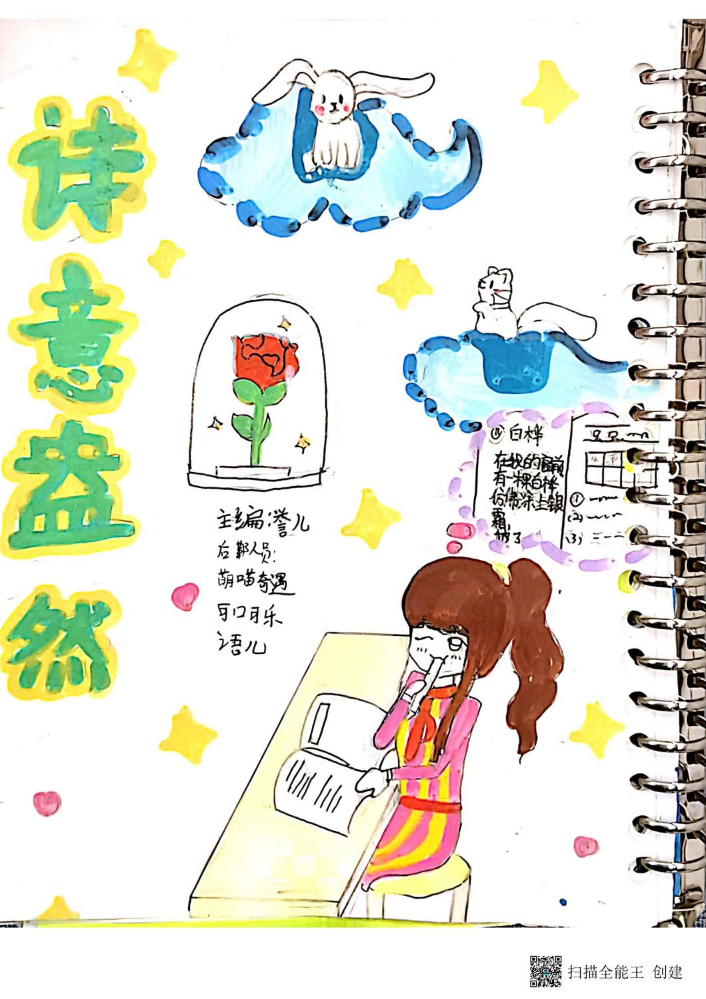 诗意盎然
主编:誉儿
后勤人员:
萌喵奇遇
可口可乐
语儿
白桦
在我的窗前
有一棵白桜
仿佛涂上银
霜,
(1)
(2)
(3)
扫描全能王 创建